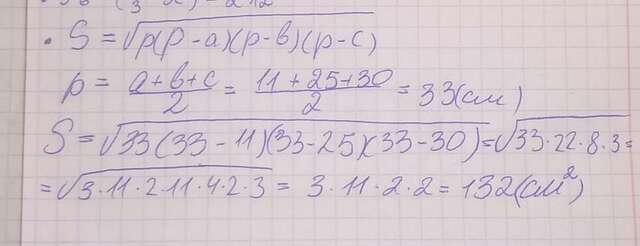 • S = √p(p-a)(p-b)(p-c)
p = a+b+c/2 = 11+25+30/2 = 33(см)
S = √33(33-11)(33-25)(33-30) = √33·22·8·3 =
= √3·11·2·11·4·2·3 = 3·11·2·2 = 132(см²)